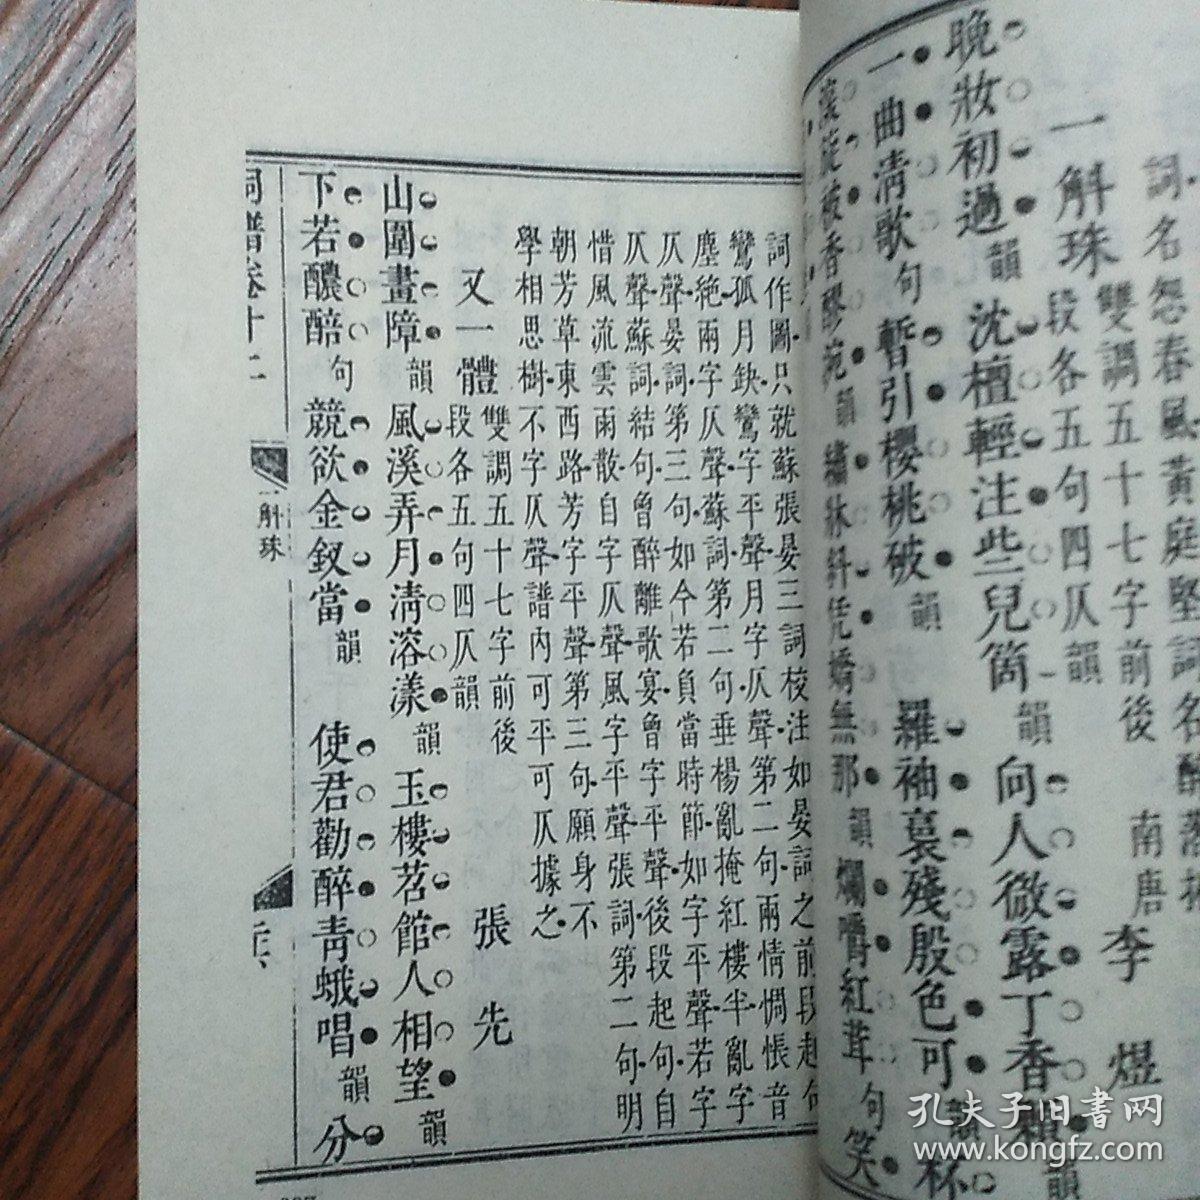 詞名怨春風黃庭堅詞名醉落
一斛珠 雙調五十七字前後 南唐 李 煜
段各五句四仄韻
晚妝初過韻沈檀輕注些兒箇韻向人微露丁香
一曲清歌句暫引櫻桃破韻 羅袖裛殘殷色可韻杯
香醪涴韻繡牀斜凭嬌無那韻爛嚼紅茸句笑
詞作圖只就蘇張晏三詞校注如晏詞之前段起句
鸞孤月缺鸞字平聲月字仄聲第二句兩情惆悵音
塵絕兩字仄聲蘇詞第二句垂楊亂掩紅樓半亂字
仄聲晏詞第三句如今若負當時節如字平聲若字
仄聲蘇詞結句曾醉離歌宴曾字平聲後段起句自
惜風流雲雨散自字仄聲風字平聲張詞第二句明
朝芳草東西路芳字平聲第三句願身不
學相思樹不字仄聲譜內可平可仄據之
又一體 雙調五十七字前後 張 先
段各五句四仄韻
山圍畫障韻風溪弄月清溶漾韻玉樓苕館人相望韻
下若醲醅句競欲金釵當韻 使君勸醉青蛾唱韻分
詞譜卷十二 一斛珠
孔夫子旧書网
www.kongfz.com